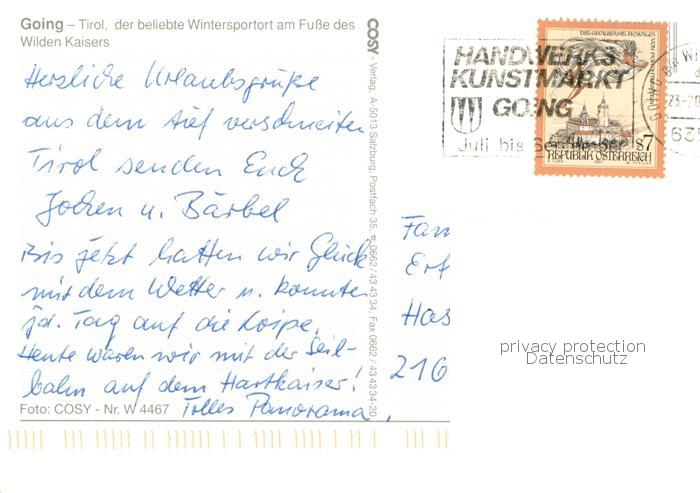 Going – Tirol, der beliebte Wintersportort am Fuße des
Wilden Kaisers
Herzliche Urlaubsgrüße
aus dem tief verschneiten
Tirol senden Euch
Jochen u. Bärbel
Bis jetzt hatten wir Glück
mit dem Wetter u. konnten
jd. Tag auf die Loipe.
Heute waren wir mit der Seil-
bahn auf dem Hartkaiser!
Tolles Panorama.
Foto: COSY - Nr. W 4467
COSY - Verlag, A-5013 Salzburg, Postfach 35, 0662/43 43 34, Fax 0662/43 43 34-20
HANDWERKS
KUNSTMARKT
GOING
Juli bis September
S7
REPUBLIK ÖSTERREICH
Fam
Erf
Has
216
privacy protection
Datenschutz